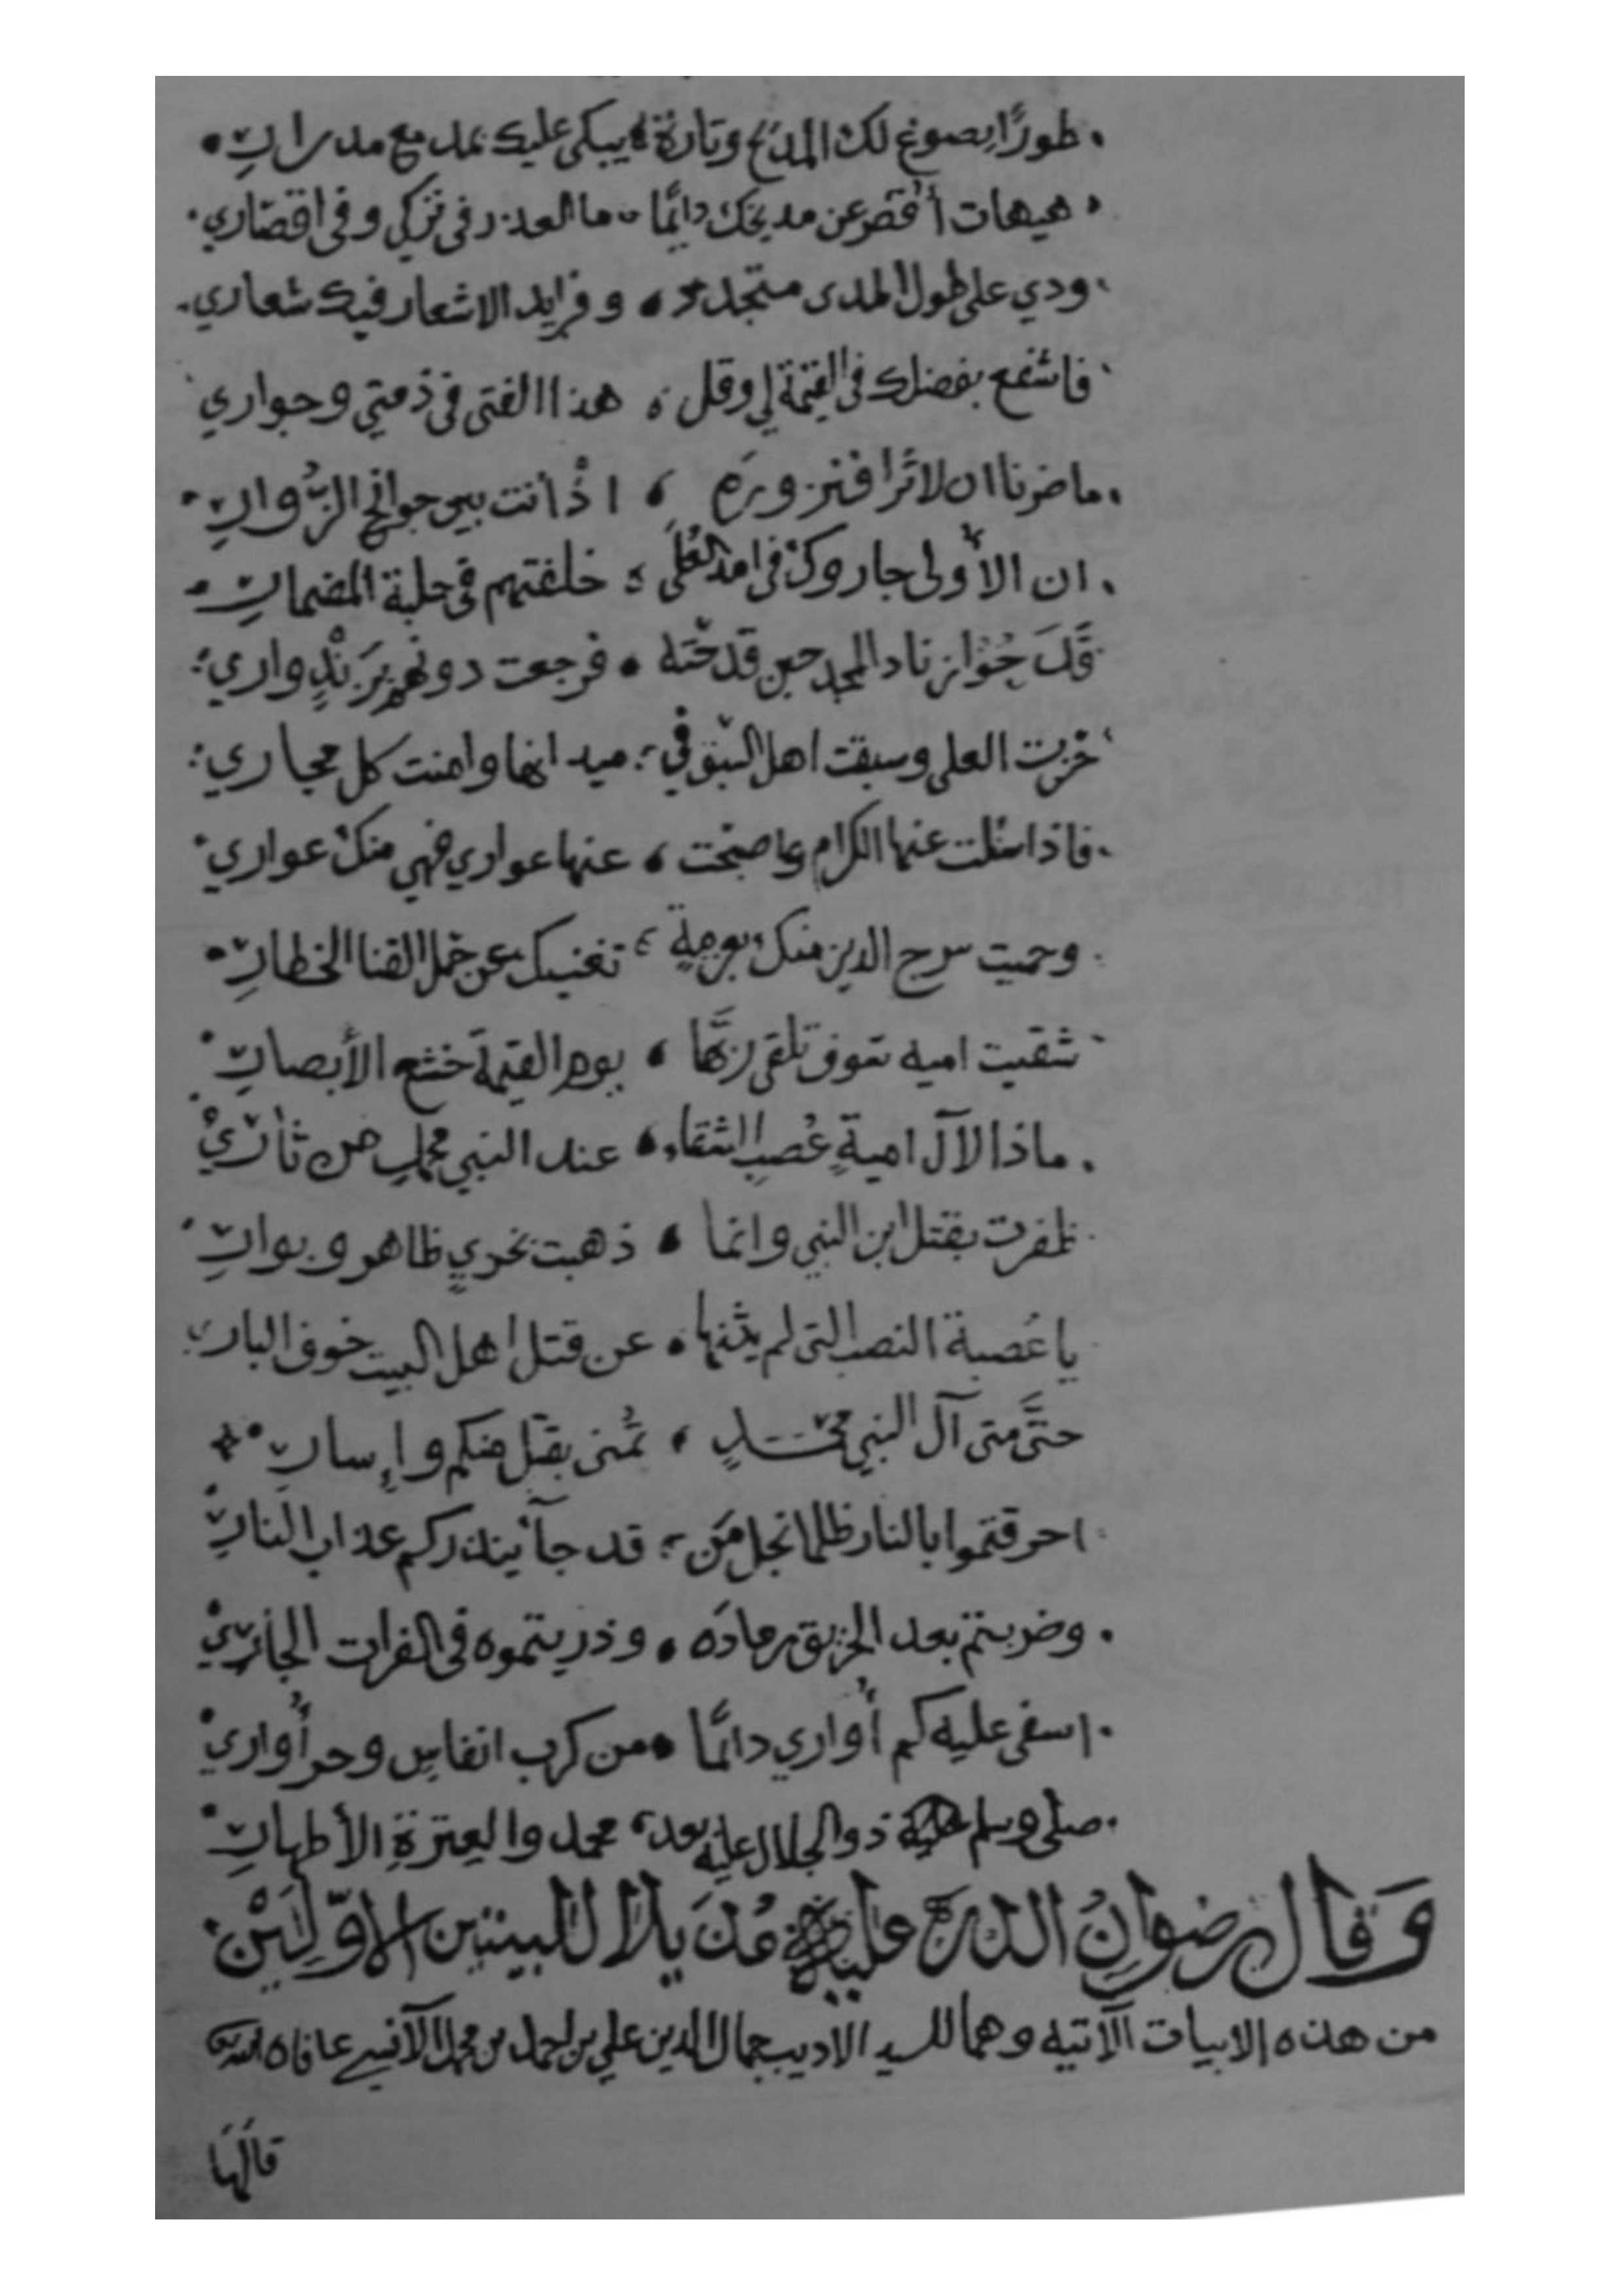 طورًا يصوغ لك المديح وتارة يبكي عليك بمدمع مدرار
هيهات أقصر عن مديحك دايمًا ما العذر في تركي وفي اقصاري
ودي على طول المدى متجدد وفرايد الاشعار فيك شعاري
فاشفع بفضلك في القيمة لي وقل هذا الفتى في ذمتي وجواري
ما ضرنا ان لا ترا فنزوره اذ أنت بين جوانح الزُّوارِ
ان الأولى جاروك في امد العُلى خلفتهم في حلبة المضمار
زناد المجد حين قدحته فرجعت دونهم بزَنْدٍ واري
حُزت العلى وسبقت اهل السبق في ميدانها وامنت كل مجاري
فاذا سئلت عنها الكرام عنها عواري فهي منك عواري
وحميت سرح الدين منك بعزمةٍ تغنيك عن حمل القنا الخطار
شقيت اميه سوف تلقى ربَّها يوم القيمة خشع الأبصار
ماذا لآل اميةٍ عُصب الشقاء عند النبي محمد من ثارِ
ظفرت بقتل ابن النبي وانما ذهبت بخزيٍ ظاهر وبوارِ
يا عُصبة النصب التي لم يثنها عن قتل اهل البيت خوف الباري
حتَّى متى آل النبي محمدٍ تُمنى بقتل منكم وإسارِ
احرقتموا بالنار ظلما نجل مَن قد جآ ينذركم عذاب النار
وضربتم بعد الحريق رمادَه وذريتموه في الفرات الجاري
اسفي عليه كم أُواري دائمًا من كرب انفاسٍ وحر أُواري
صلى وسلم ذو الجلال عليه بعد محمد والعِترةِ الأطهارِ
وَقَال رضوانُ الله عليه مُذَيلا للبيتين الاوّلَيْن
من هذه الابيات الآتيه وهما للسيد الاديب جمال الدين علي بن احمد بن محمد الآنسي عافاه الله
قالَهَا